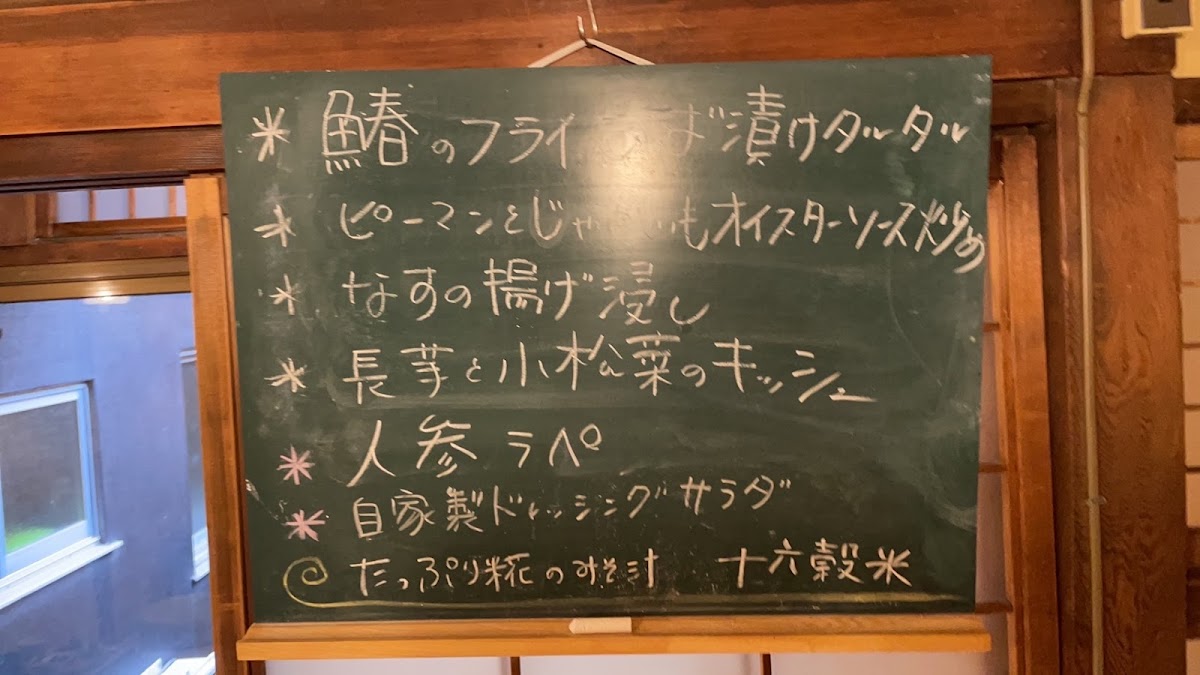 * 鰆のフライ しば漬けタルタル
* ピーマンとじゃがいもオイスターソース炒め
* なすの揚げ浸し
* 長芋と小松菜のキッシュ
* 人参ラペ
* 自家製ドレッシングサラダ
たっぷり糀のみそ汁 十六穀米